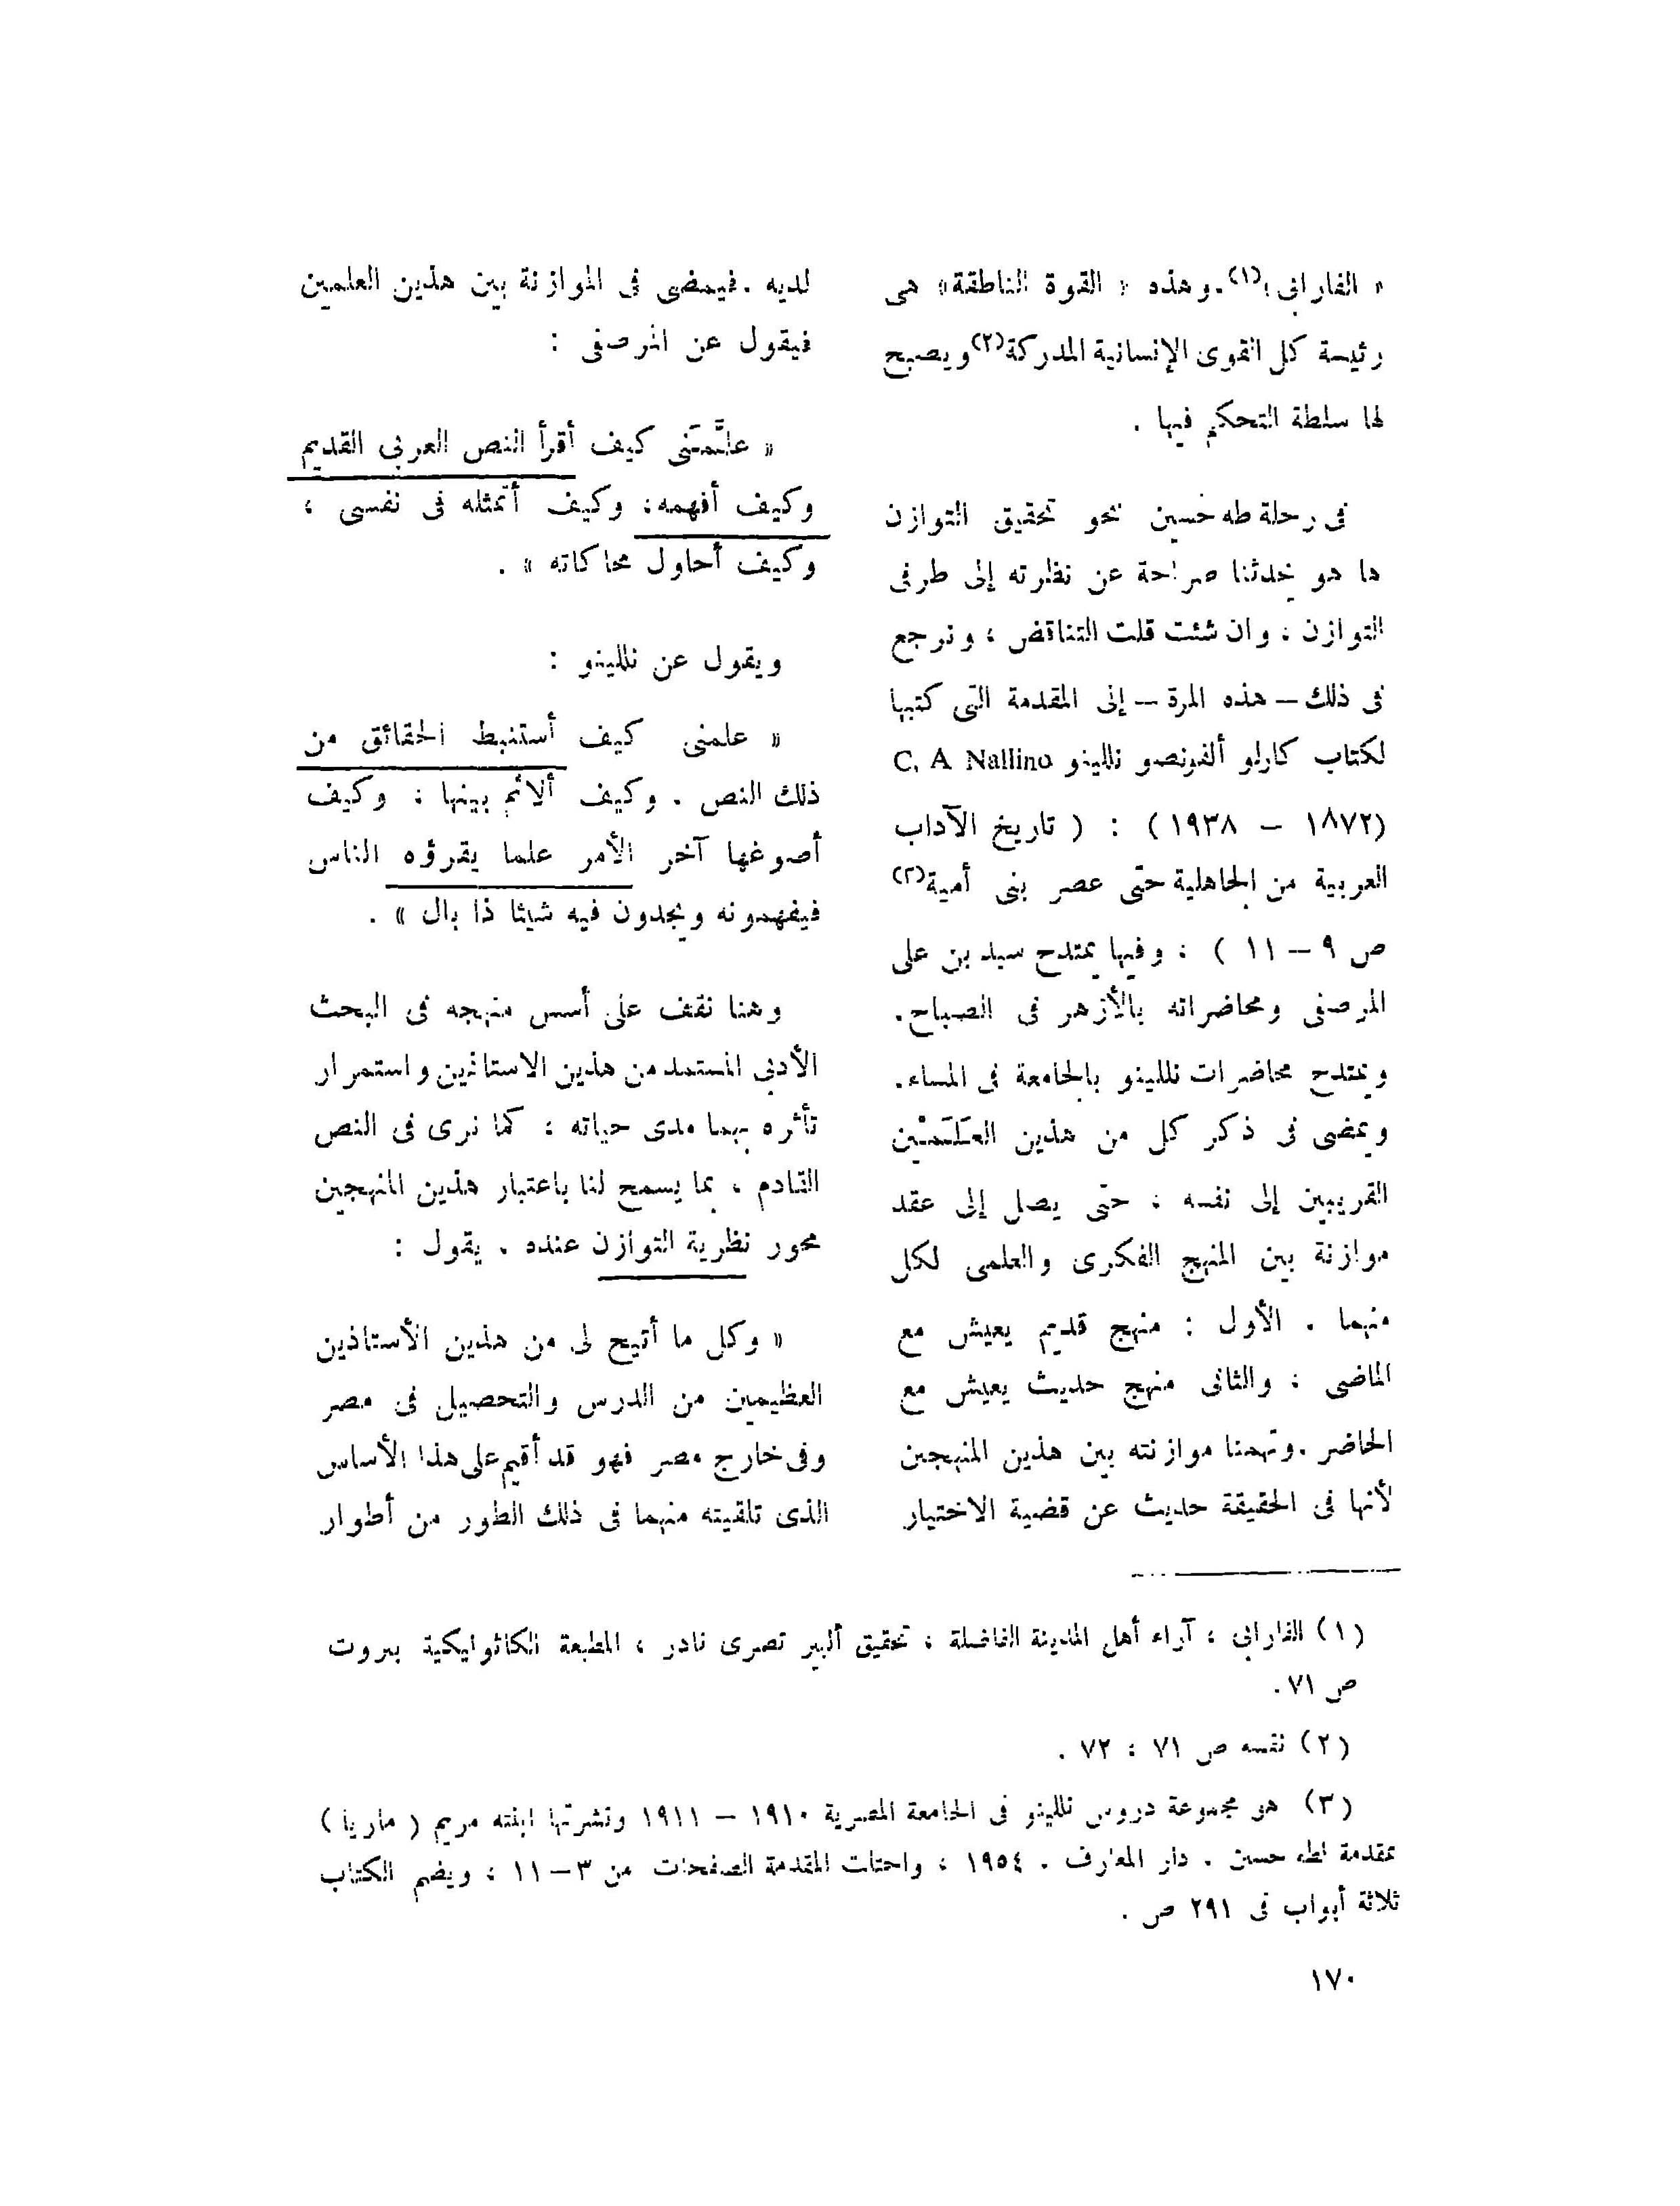 « الفارابى »(١). وهذه « القوة الناطقة » هى
رئيسة كل القوى الإنسانية المدركة(٢) ويصبح
لها سلطة التحكم فيها .
فى رحلة طه حسين نحو تحقيق التوازن
ها هو يحدثنا صراحة عن نظرته إلى طرفى
التوازن ، وان شئت قلت التناقض ، ونرجع
فى ذلك – هذه المرة – إلى المقدمة التى كتبها
لكتاب كارلو ألفونصو نللينو C. A Nallino
(١٨٧٢ – ١٩٣٨) : ( تاريخ الآداب
العربية من الجاهلية حتى عصر بنى أمية(٣)
ص ٩ – ١١ ) ، وفيها يمتدح سيد بن على
المرصفى ومحاضراته بالأزهر فى الصباح.
ويمتدح محاضرات نللينو بالجامعة فى المساء.
ويمضى فى ذكر كل من هذين العَلَمَيْن
القريبين إلى نفسه ، حتى يصل إلى عقد
موازنة بين المنهج الفكرى والعلمى لكل
منهما . الأول : منهج قديم يعيش مع
الماضى ، والثانى منهج حديث يعيش مع
الحاضر .وتهمنا موازنته بين هذين المنهجين
لأنها فى الحقيقة حديث عن قضية الاختيار
لديه .فيمضى فى الموازنة بين هذين العلمين
فيقول عن المرصفى :
« علَّمَنى كيف أقرأ النص العربى القديم
وكيف أفهمه، وكيف أتمثله فى نفسى ،
وكيف أحاول محاكاته » .
ويقول عن نللينو :
« علمنى كيف أستنبط الحقائق من
ذلك النص . وكيف ألائم بينها ، وكيف
أصوغها آخر الأمر علما يقرؤه الناس
فيفهمونه ويجدون فيه شيئا ذا بال » .
وهنا نقف على أسس منهجه فى البحث
الأدبى المستمد من هذين الاستاذين واستمرار
تأثره بهما مدى حياته ، كما نرى فى النص
القادم ، بما يسمح لنا باعتبار هذين المنهجين
محور نظرية التوازن عنده . يقول :
« وكل ما أتيح لى من هذين الأستاذين
العظيمين من الدرس والتحصيل فى مصر
وفى خارج مصر فهو قد أقيم على هذا الأساس
الذى تلقيته منهما فى ذلك الطور من أطوار
(١) الفارابى ، آراء أهل المدينة الفاضلة ، تحقيق ألبير نصرى نادر ، المطبعة الكاثوليكية بيروت
ص ٧١.
(٢) نفسه ص ٧١ ، ٧٢ .
(٣) هو مجموعة دروس نللينو فى الجامعة المصرية ١٩١٠ – ١٩١١ ونشرتها ابنته مريم ( ماريا )
بمقدمة لطه حسين . دار المعارف . ١٩٥٤ ، واحتلت المقدمة الصفحات من ٣ – ١١ ، ويضم الكتاب
ثلاثة أبواب فى ٢٩١ ص .
١٧٠